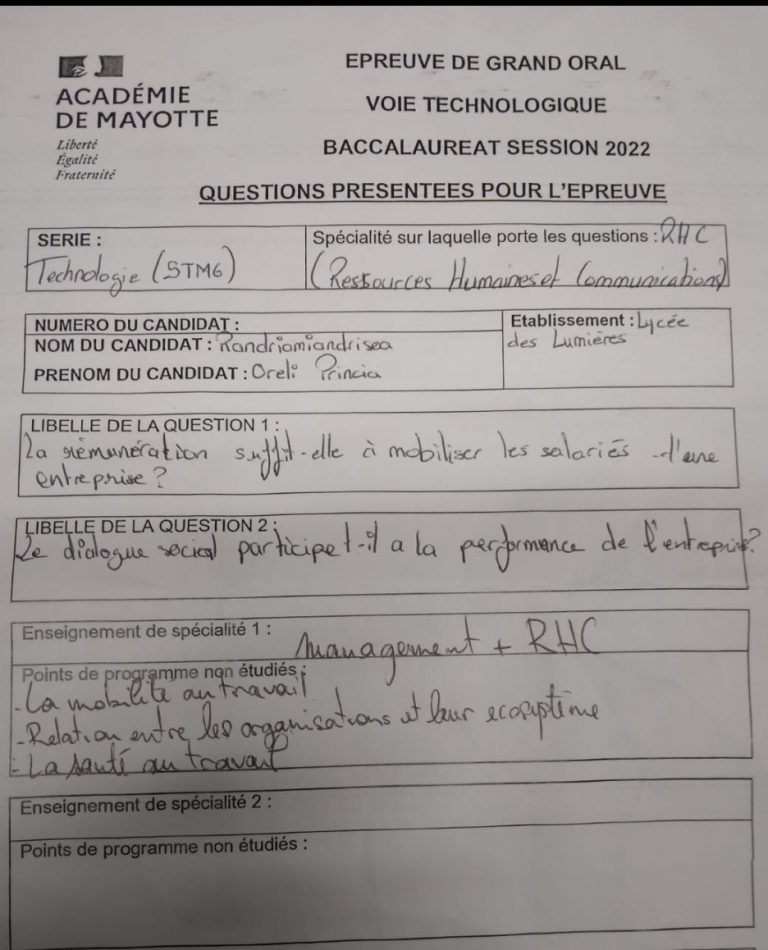 EPREUVE DE GRAND ORAL
ACADÉMIE
DE MAYOTTE
VOIE TECHNOLOGIQUE
Liberté
Égalité
Fraternité
BACCALAUREAT SESSION 2022
QUESTIONS PRESENTEES POUR L'EPREUVE
SERIE :
Technologie (STMG)
Spécialité sur laquelle porte les questions : RHC
(Ressources Humaines et Communication)
NUMERO DU CANDIDAT :
NOM DU CANDIDAT : Randriamiandrisea
PRENOM DU CANDIDAT : Oreli Princia
Etablissement : Lycée
des Lumières
LIBELLE DE LA QUESTION 1 :
La rémunération suffit-elle à mobiliser les salariés d'une
entreprise ?
LIBELLE DE LA QUESTION 2 :
Le dialogue social participe t-il a la performance de l'entreprise ?
Enseignement de spécialité 1 :
Management + RHC
Points de programme non étudiés :
- La mobilité au travail
- Relation entre les organisations et leur ecosystème
- La santé au travail
Enseignement de spécialité 2 :
Points de programme non étudiés :